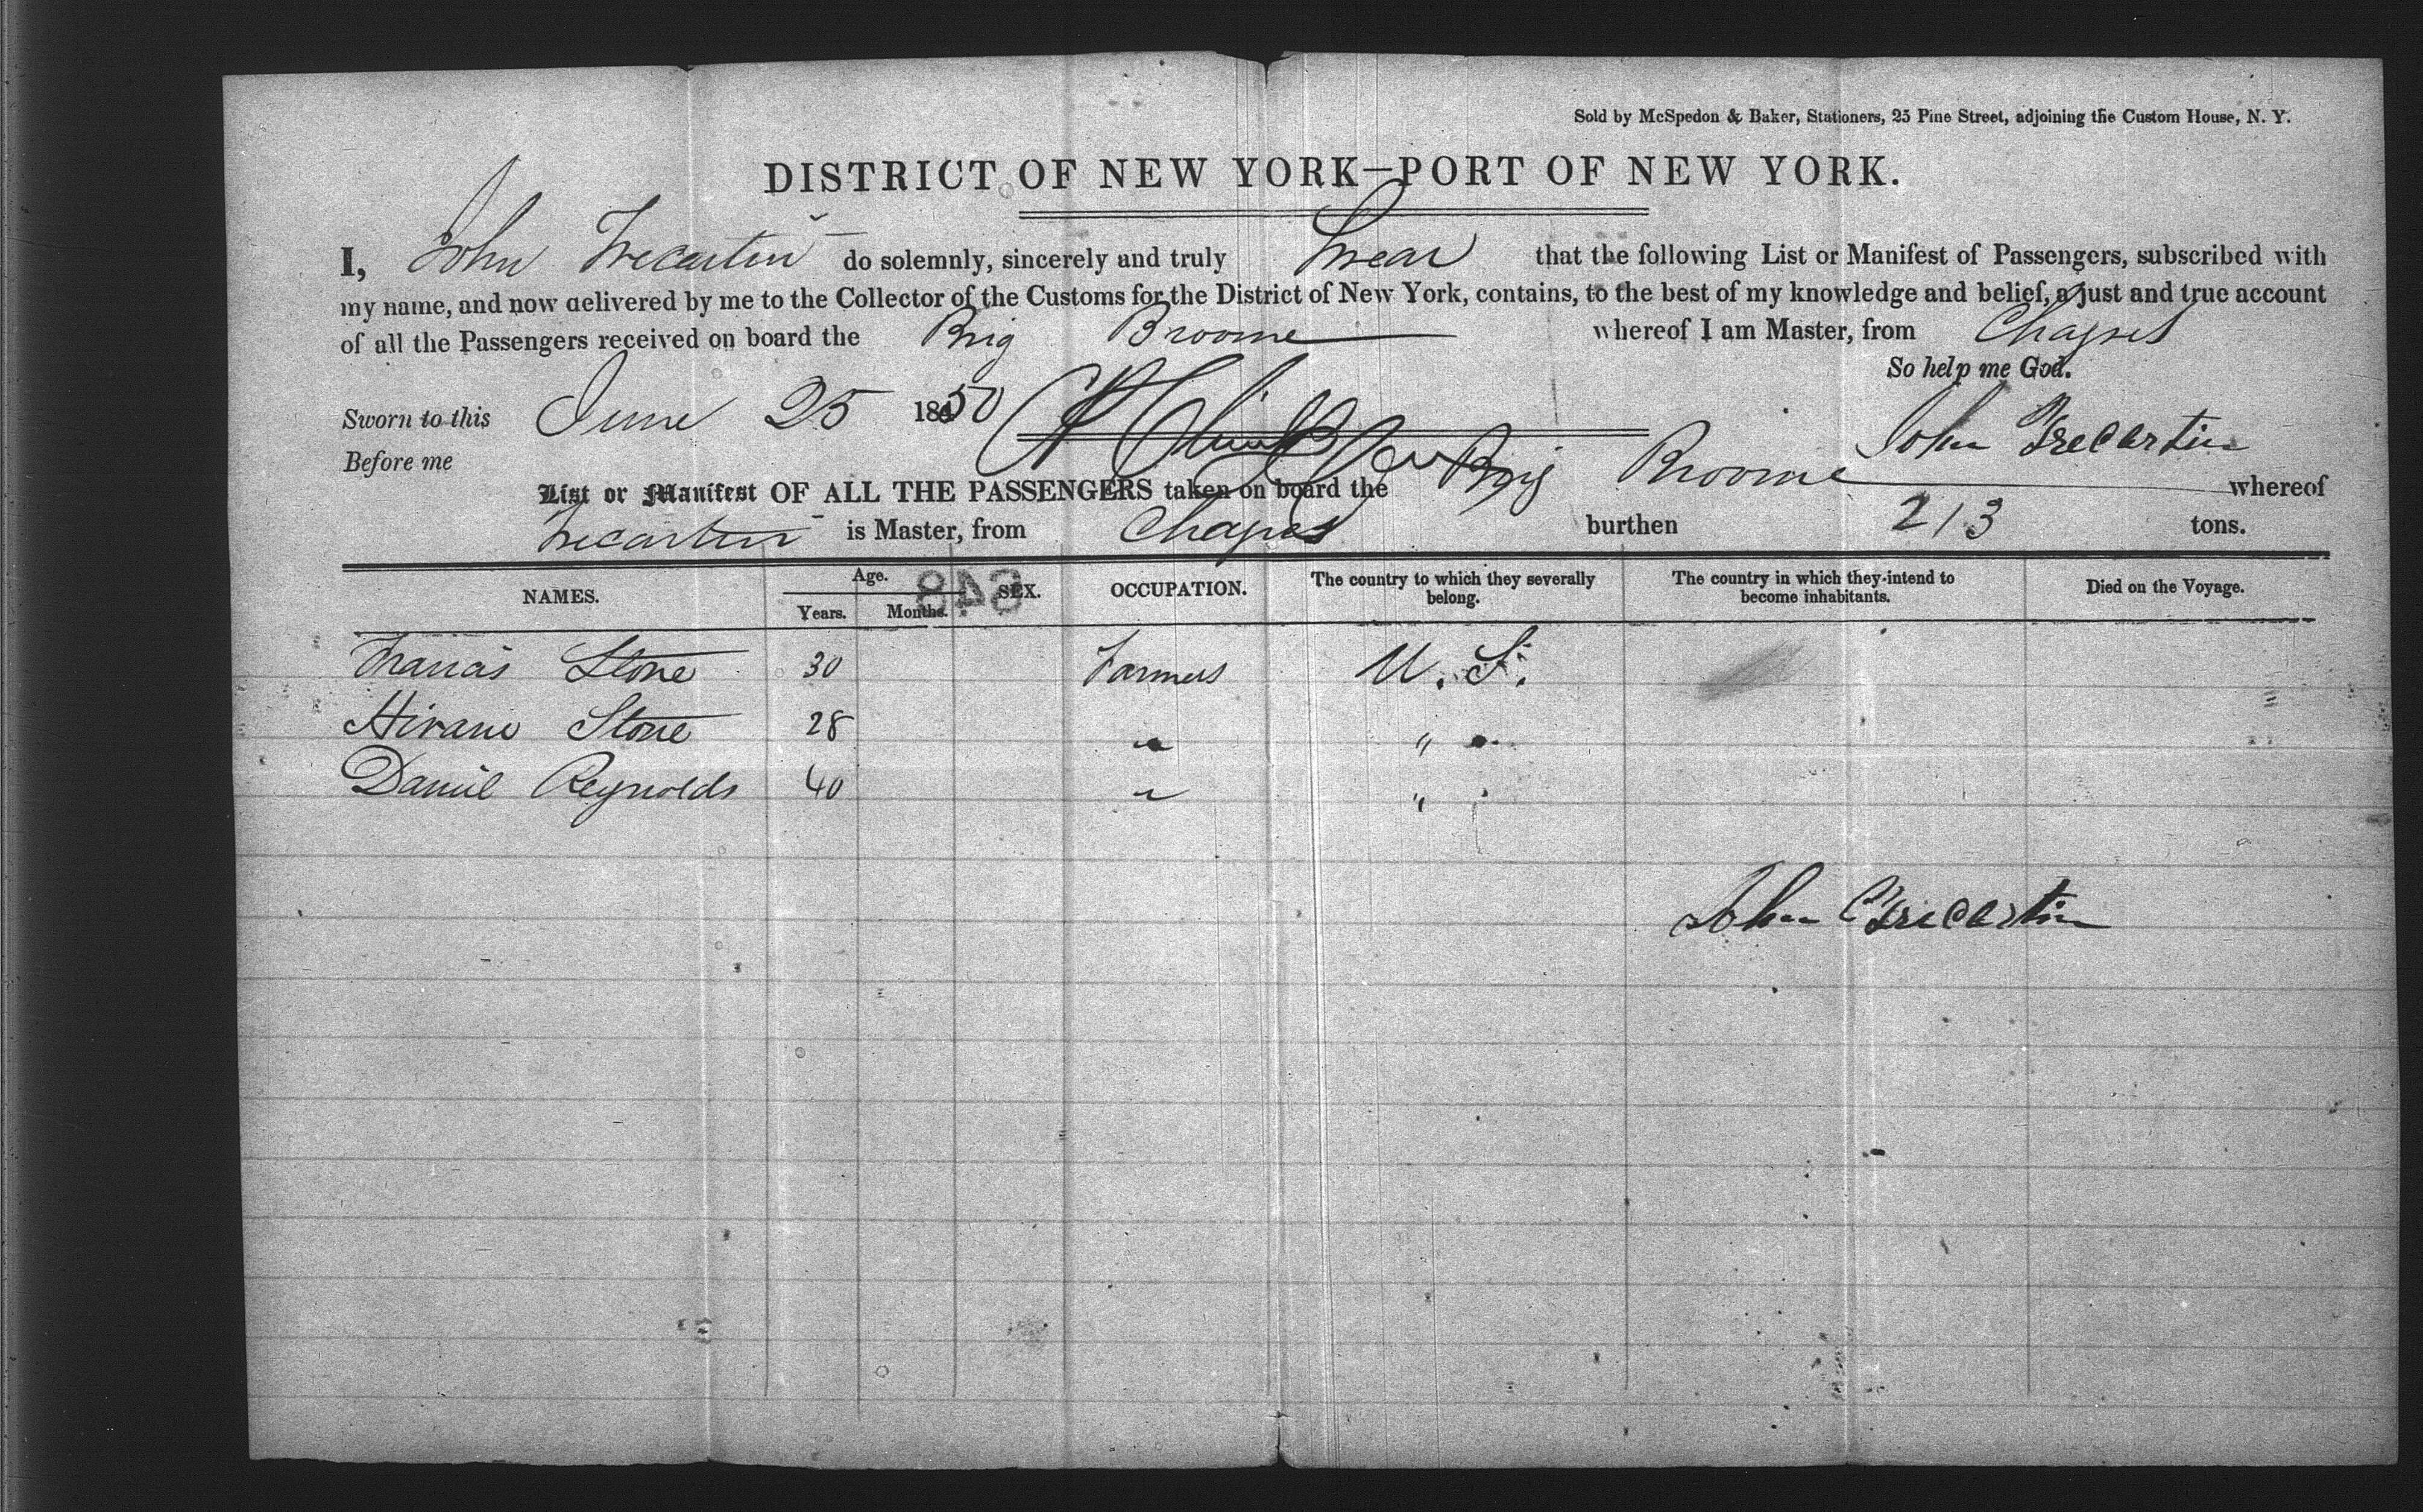 Sold by McSpedon & Baker, Stationers, 25 Pine Street, adjoining the Custom House, N. Y.
DISTRICT OF NEW YORK—PORT OF NEW YORK.
I, John Trecartin do solemnly, sincerely and truly Swear that the following List or Manifest of Passengers, subscribed with
my name, and now delivered by me to the Collector of the Customs for the District of New York, contains, to the best of my knowledge and belief, a just and true account
of all the Passengers received on board the Brig Broome whereof I am Master, from Chagres
So help me God.
Sworn to this June 25 1850
John Trecartin
Before me
List or Manifest OF ALL THE PASSENGERS taken on board the Brig Broome whereof
Trecartin is Master, from Chagres burthen 213 tons.
NAMES. Age. Years. Months. SEX. OCCUPATION. The country to which they severally belong. The country in which they intend to become inhabitants. Died on the Voyage.
848
Francis Stone 30 Farmers U. S.
Hiram Stone 28 " "
Daniel Reynolds 40 " "
John Trecartin